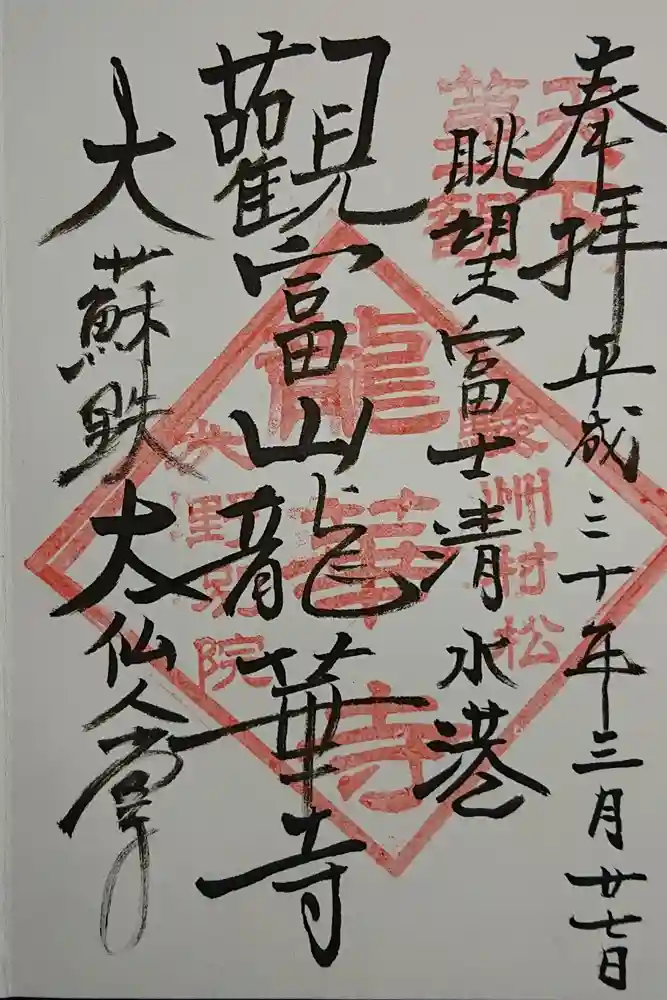 奉拝 平成三十年三月廿七日
眺望富士清水港
觀富山龍華寺
大蘇鉄 大仙人掌
天下
龍華寺
駿州村松
院